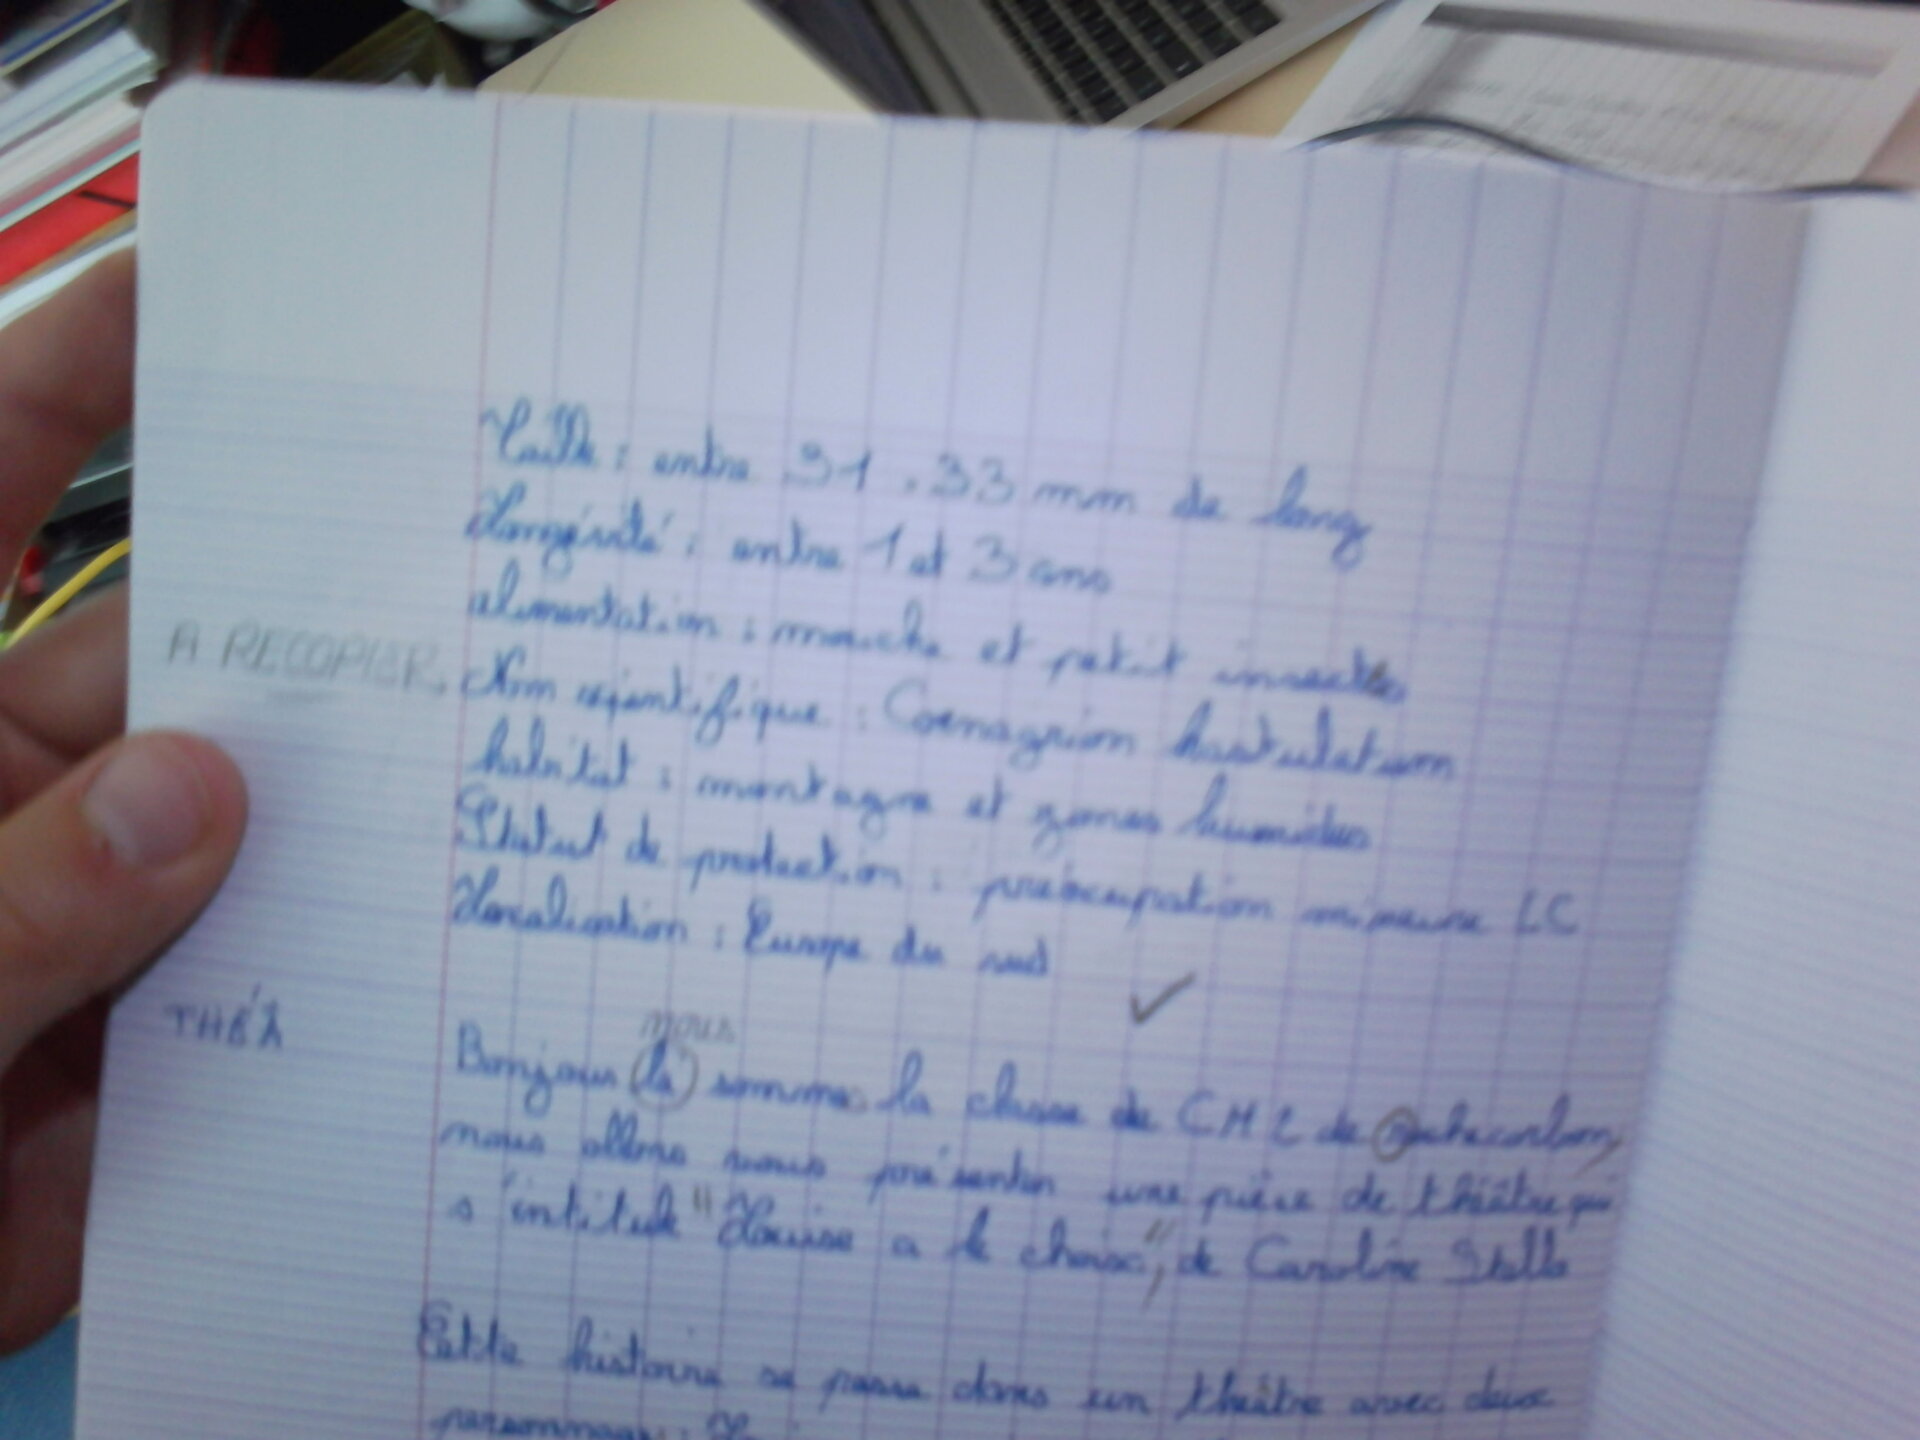 Taille : entre 31. 33 mm de long
Longévité : entre 1 et 3 ans
alimentation : mouche et petit insectes
A RECOPIER Nom scientifique : Coenagrion hastulatum
habitat : montagne et zones humides
Statut de protection : préocupation mineure LC
Localisation : Europe du sud
nous
THÉÂ Bonjour la somme la classe de CM2 de rochecorbon,
nous allons vous présenter une pièce de théâtre qui
s'intitule "Louise a le choix", de Caroline Stella
Cette histoire se passe dans un théâtre avec deux
personnages :